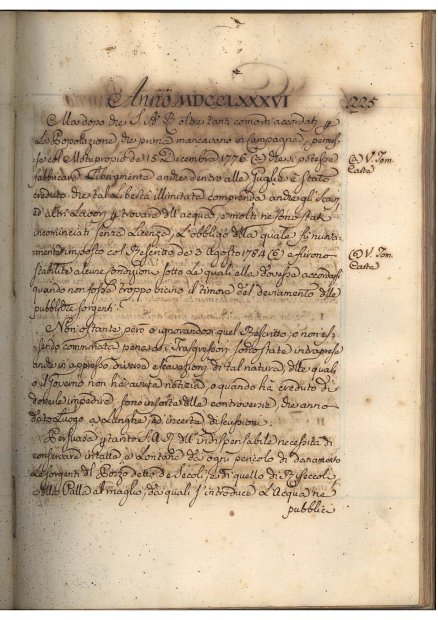 Anno MDCCLXXXVI
225
Ma dopo che S. A. R. oltre tanti comodi accordati
La Popolazione, che prima mancavano in Campagna, permes-
se col Motuproprio de 15 Dicembre 1776 che si potesse
(a) V. Tom.
Carte
fabbricare Liberamente anche dentro alle è stato
creduto che tal Libertà illimitata comprenda anche gli Scavi
ed altri Lavori p. trovare dell'acqua, e molti ne sono stati
incominciati senza Licenza, L'obbligo della quale fu nuova-
mente imposto col Rescritto de 3 Agosto 1784 e furono
(a) V. Tom.
Carte
stabilite alcune condizioni sotto le quali alle dovesse accordarsi
quando non fosse troppo vicino il timore del deviamento delle
pubbliche sorgenti.
Non ostante però o ignorandosi quel Rescritto, o non es-
sendo comminata pena ai Trasgressori sono state intraprese
anche in appresso diverse escavazioni di tal natura, delle quali
o il Governo non ha avuta notizia, o quando ha creduto di
doverle impedire, sono insorte delle controversie, che anno
dato Luogo a Lunghe, ed incerte discussioni.
Persuasa p.tanto S. A. R. dell'indispensabile necessità di
conservare intatte, e Lontane da ogni pericolo di danneggiamento
Le sorgenti del Pozzo detto de Secoli, e di quello di
della Palla al maglio, da quali s'introduce L'Acqua ne
pubblici